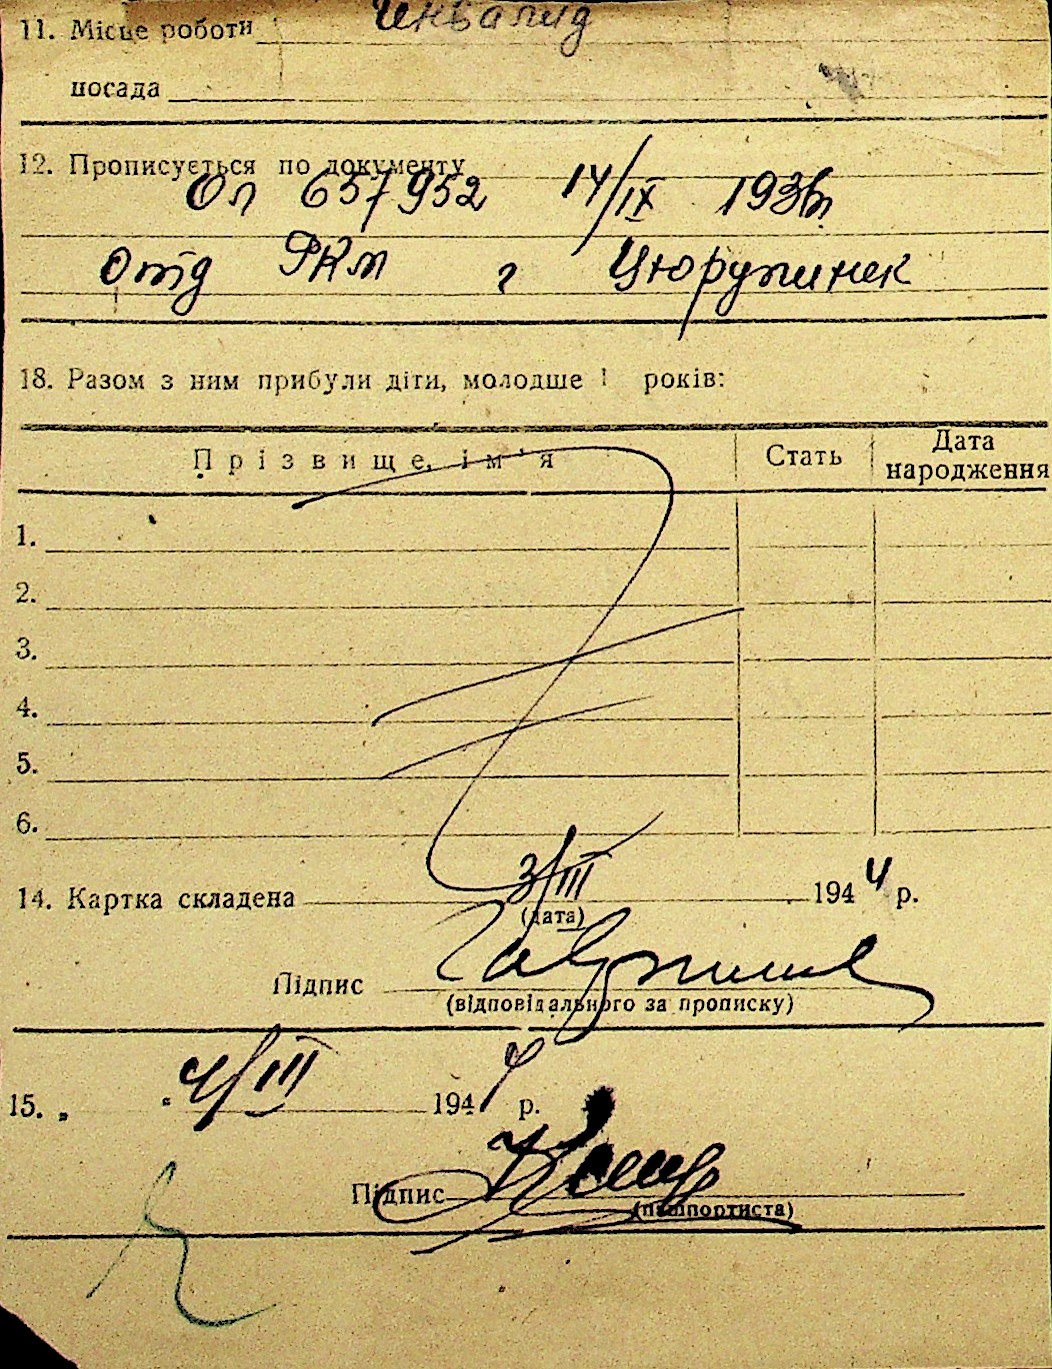 Инвалид
11. Місце роботи
посада
12. Прописується по документу
Оп 657952 14/IX 1936г
Отд РКМ г Цюрупинск
18. Разом з ним прибули діти, молодше 1 років:
Прізвище, ім'я Стать Дата народження
1.
2.
3.
4.
5.
6.
14. Картка складена 3/III 1944 р.
(дата)
Підпис
(відповідального за прописку)
15. „ “ 4/III 1944 р.
Підпис
(пашпортиста)